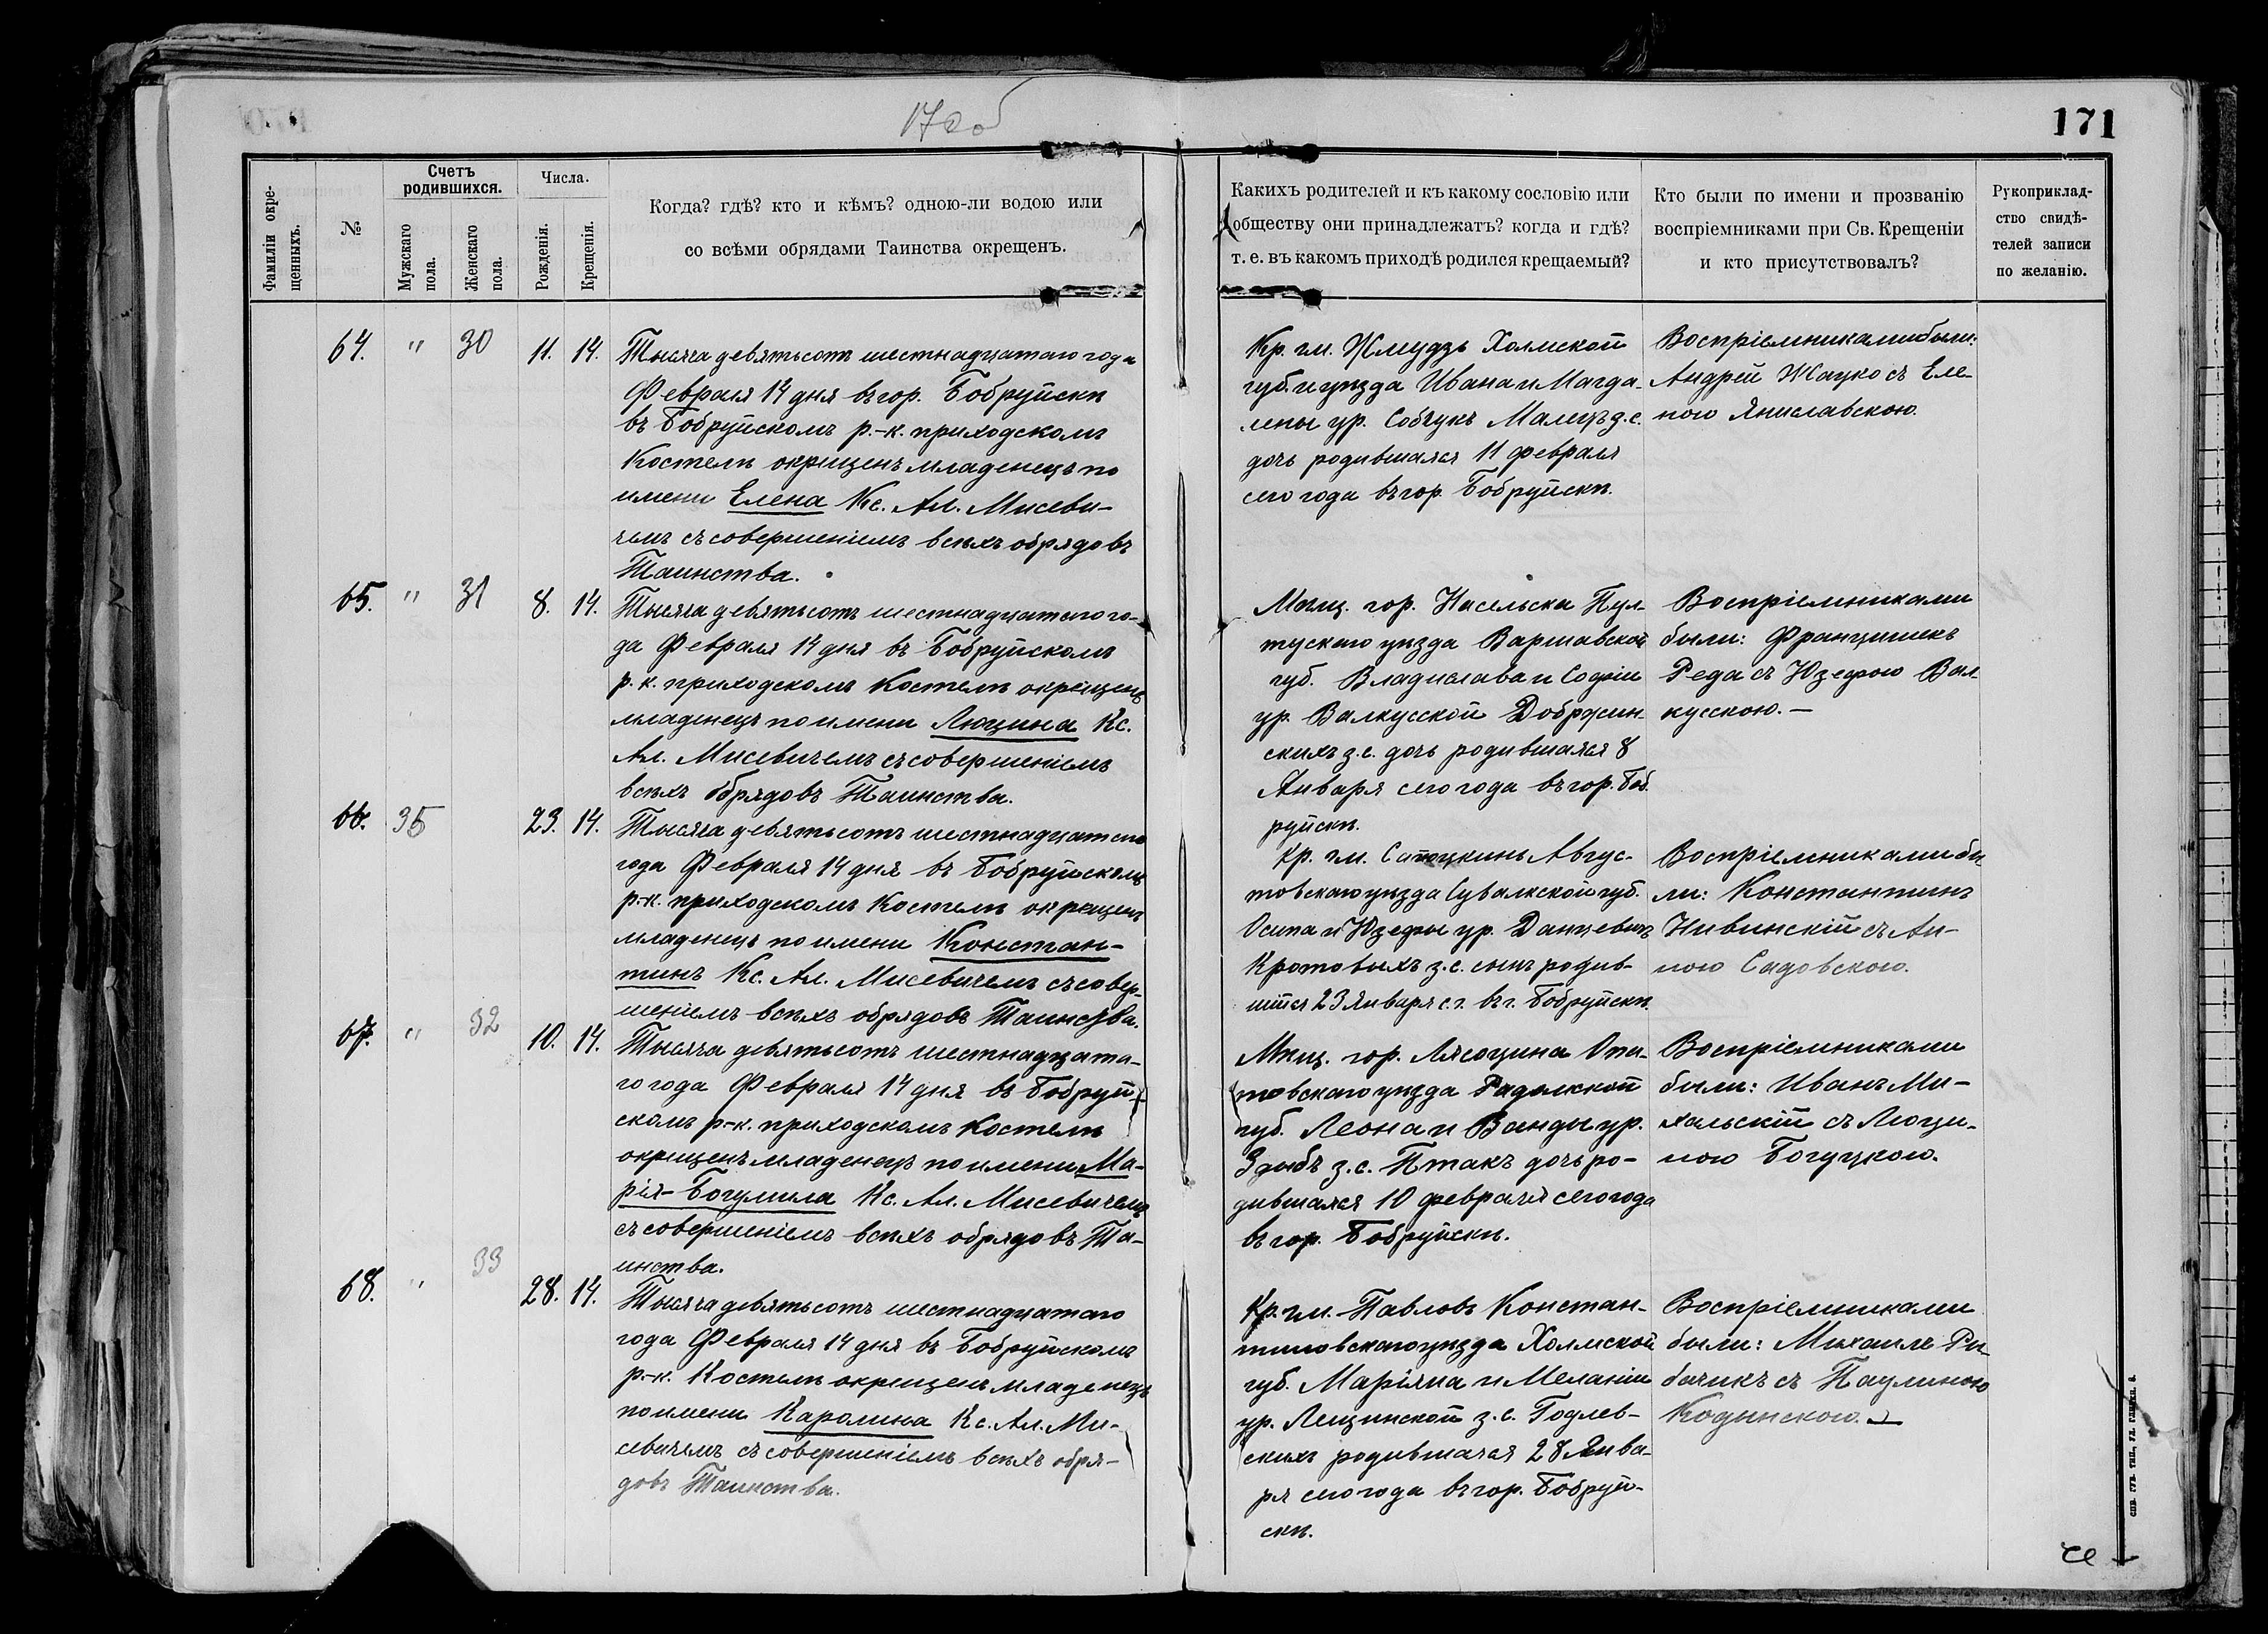 170об
171
Фамиліи окрещенныхъ.
№
Счетъ родившихся.
Мужскаго пола.
Женскаго пола.
Числа.
Рожденія.
Крещенія.
Когда? гдѣ? кто и кѣмъ? одною-ли водою или
со всѣми обрядами Таинства окрещенъ.
Какихъ родителей и къ какому сословію или
обществу они принадлежатъ? когда и гдѣ?
т. е. въ какомъ приходѣ родился крещаемый?
Кто были по имени и прозванію
воспріемниками при Св. Крещеніи
и кто присутствовалъ?
Рукоприклад-
ство свидѣ-
телей записи
по желанію.
64. " 30 11. 14.
Тысяча девятьсотъ шестнадцатаго года
Февраля 14 дня въ гор. Бобруйскѣ
въ Бобруйскомъ р.-к. приходскомъ
Костелѣ окрещенъ младенецъ по
имени Елена Кс. Ал. Мисеви-
чемъ съ совершеніемъ всѣхъ обрядовъ
Таинства.
Кр. гм. Жмудзь Холмской
губ. и уѣзда Ивана и Магда-
лены ур. Собчукъ Малецъ з.с.
дочь родившаяся 11 февраля
сего года въ гор. Бобруйскѣ.
Воспріемниками были:
Андрей Жацко съ Еле-
ною Яниславскою.
65. " 31 8. 14.
Тысяча девятьсотъ шестнадцатаго го-
да Февраля 14 дня въ Бобруйскомъ
р. к. приходскомъ Костелѣ окрещенъ
младенецъ по имени Люцина Кс.
Ал. Мисевичемъ съ совершеніемъ
всѣхъ обрядовъ Таинства.
Мѣщ. гор. Насельска Пул-
тускаго уѣзда Варшавской
губ. Владислава и Софіи
ур. Валкусской Добрусин-
скихъ з.с. дочь родившаяся 8
Января сего года въ гор. Боб
руйскѣ.
Воспріемниками
были: Францишекъ
Реда съ Юзефою Вал-
кусскою. —
66. 35 23. 14.
Тысяча девятьсотъ шестнадцатаго
года Февраля 14 дня въ Бобруйскомъ
р.-к. приходскомъ Костелѣ окрещенъ
младенецъ по имени Констан-
тинъ Кс. Ал. Мисевичемъ съ совер-
шеніемъ всѣхъ обрядовъ Таинства.
Кр. гм. Сапоцкинъ Авгус-
товскаго уѣзда Сувалкской губ.
Осипа и Юзефы ур. Данцевичъ
Кротовыхъ з.с. сынъ родив-
шійся 23 Января с.г. въ г. Бобруйскѣ.
Воспріемниками бы
ли: Константинъ
Нивинскій съ Ан-
ною Садовскою.
67. " 32 10. 14.
Тысяча девятьсотъ шестнадцата-
го года Февраля 14 дня въ Бобруй-
скомъ р-к. приходскомъ Костелѣ
окрещенъ младенецъ по имени Ма-
рія-Богумила Кс. Ал. Мисевичемъ
съ совершеніемъ всѣхъ обрядовъ Та-
инства.
Мѣщ. гор. Лясоцина Опа-
товскаго уѣзда Радомской
губ. Леона и Ванды ур.
Здыбъ з.с. Птакъ дочь ро-
дившаяся 10 февраля сего года
въ гор. Бобруйскѣ.
Воспріемниками
были: Иванъ Ми-
хальскій съ Люци-
ною Богуцкою.
68. " 33 28. 14.
Тысяча девятьсотъ шестнадцатаго
года Февраля 14 дня въ Бобруйскомъ
р.-к. Костелѣ окрещенъ младенецъ
по имени Каролина Кс. Ал. Ми-
севичемъ съ совершеніемъ всѣхъ обря-
довъ Таинства.
Кр. гм. Павловъ Констан-
тиновскаго уѣзда Холмской
губ. Маріяна и Меланіи
ур. Лещинской з.с. Годлев-
скихъ родившаяся 28 Янва-
ря сего года въ гор. Бобруй-
скѣ.
Воспріемниками
были: Михаилъ Ры-
бачикъ съ Паулиною
Кодынскою. —